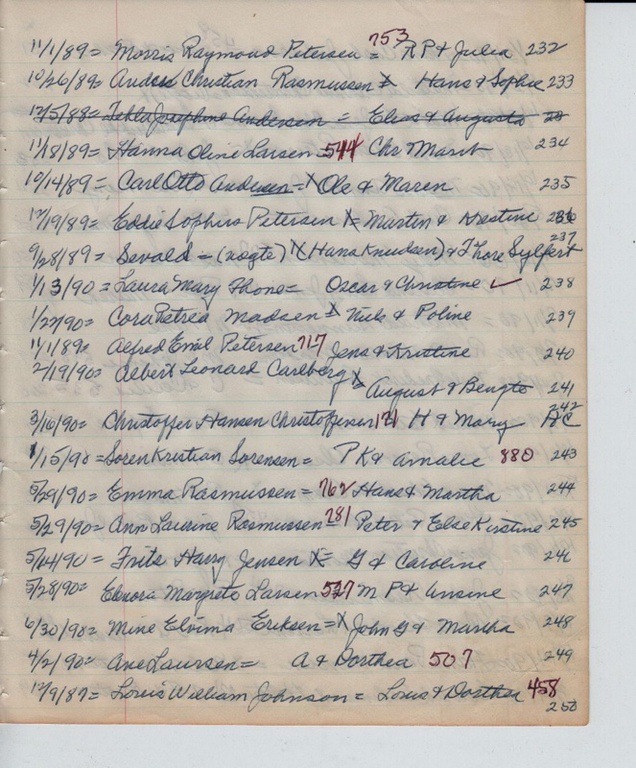 11/1/89= Morris Raymond Petersen = 753 RP & Julia 232
10/26/89= Anders Christian Rasmussen X Hans & Sophie 233
12/5/88= Tekla Josephine Andersen = Elias & Augusta
11/18/89= Hanna Oline Larsen = 544 Chr & Marit 234
10/14/89= Carl Otto Andersen = X Ole & Maren 235
12/19/89= Eddie Sophus Petersen X = Morten & Kirstine 236
9/28/89= Sevald = (nogte) X (Hans Knudsen) & Thore Sylfert 237
1/13/90= Laura Mary Thone = Oscar & Christine ✓ 238
1/27/90= Cora Petrea Madsen X Niels & Poline 239
11/1/89= Alfred Emil Petersen 717 Jens & Kirstine 240
2/19/90= Albert Leonard Carlberg X
= August & Bengte 241
3/16/90= Christoffer Hansen Christoffersen 121 H & Mary 242
1/15/90 = Soren Kristian Sorensen = P K & Amalie 880 243
5/29/90= Emma Rasmussen = 762 Hans & Martha 244
5/29/90= Ann Laurine Rasmussen = 781 Peter & Else Kirstine 245
5/04/90= Frits Harry Jensen X = G & Caroline 246
5/28/90= Elenora Margrete Larsen 527 M P & Ansine 247
6/30/90= Mine Elvima Eriksen = X John G & Martha 248
4/2/90= Ane Laursen = A & Dorthea 507 249
12/9/87= Louis William Johnson = Louis & Dorthea 458
250